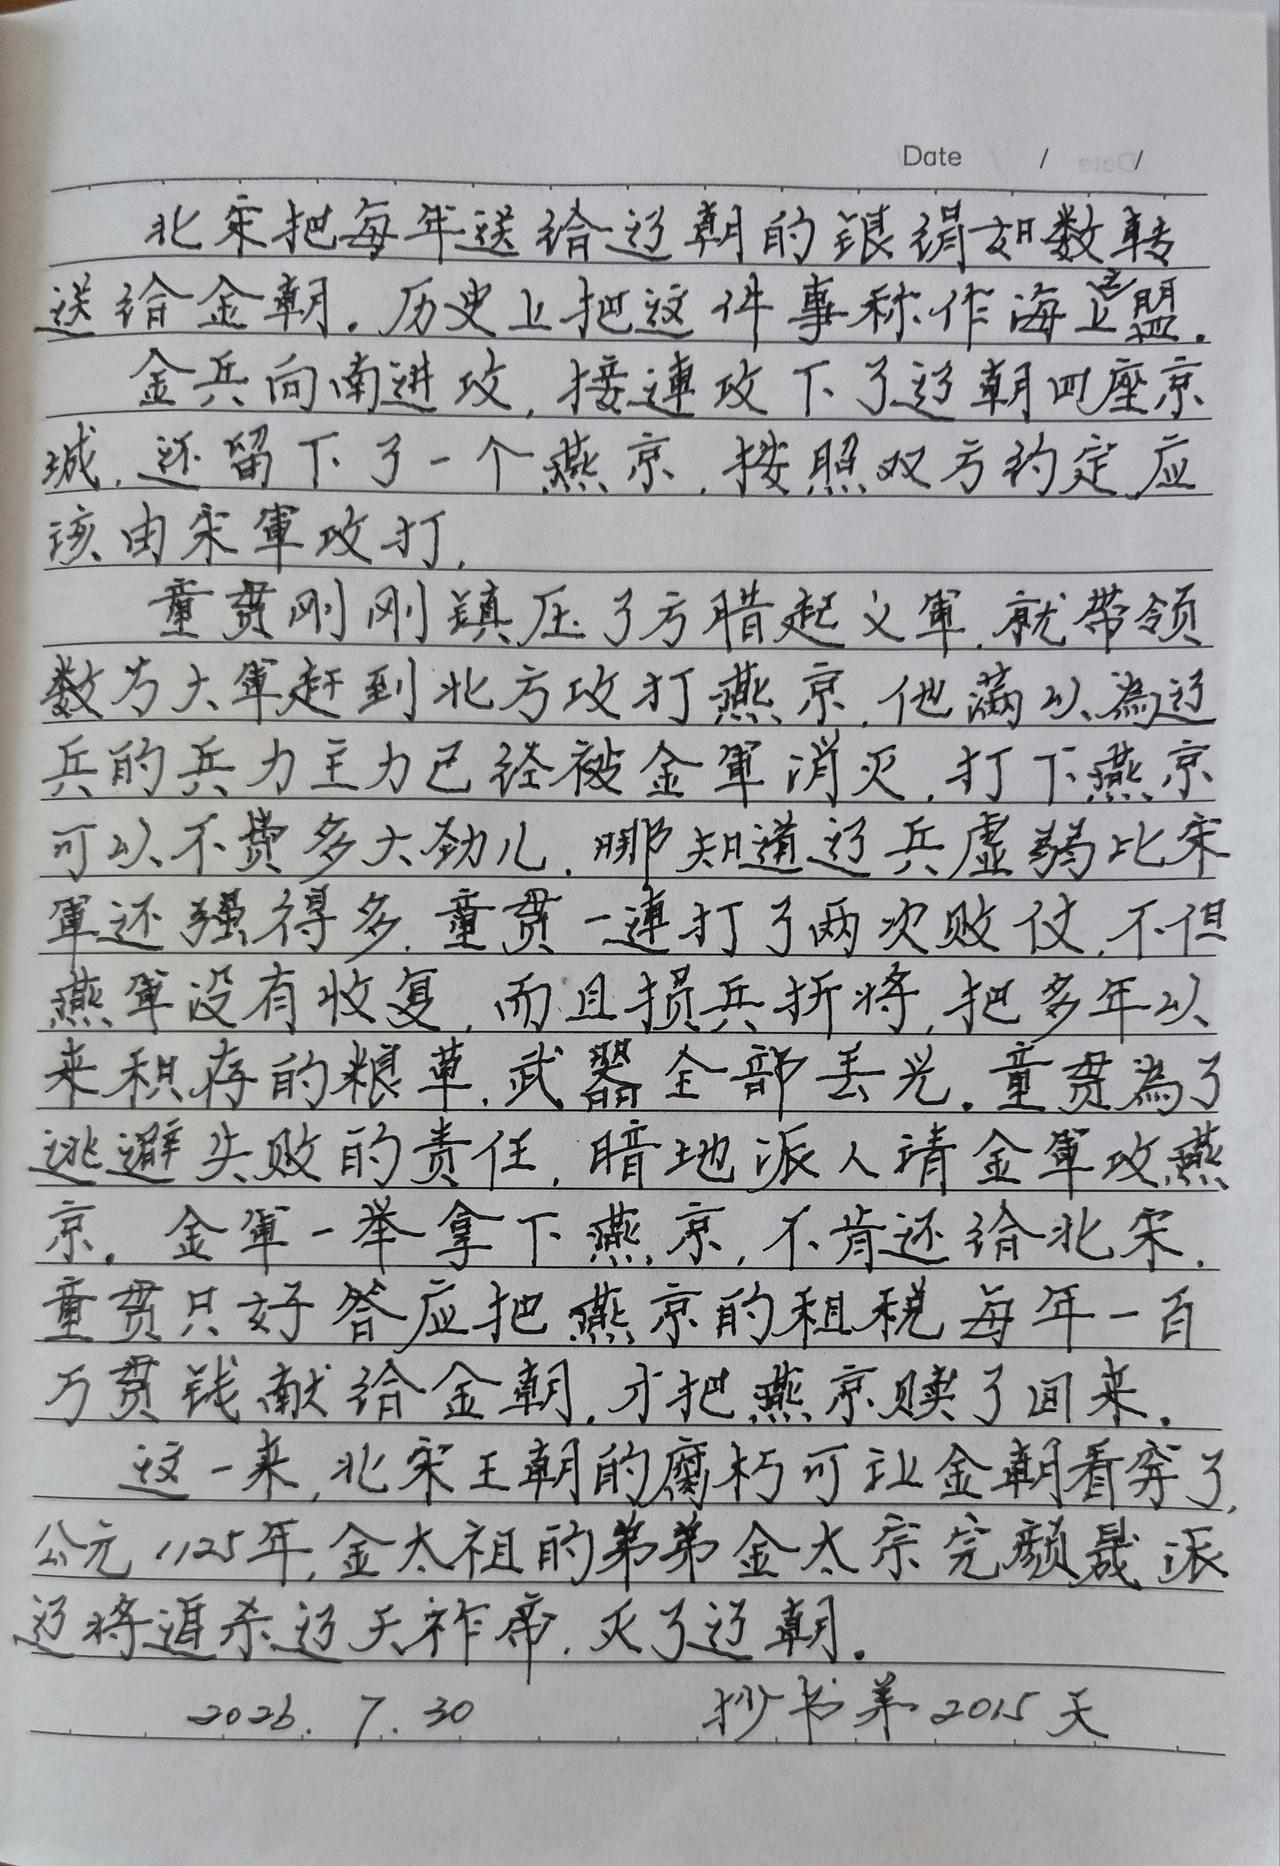 Date / /
北宋把每年送给辽朝的银绢如数转
送给金朝。历史上把这件事称作海上之盟。
金兵向南进攻,接連攻下了辽朝四座京
城,还留下了一个燕京,按照双方约定,应
该由宋軍攻打,
童贯刚刚鎮压了方腊起义軍,就带领
数万大軍赶到北方攻打燕京,他满以為辽
兵的兵力主力已经被金軍消灭,打下燕京
可以不费多大劲儿,哪知道辽兵虚弱比宋
軍还强得多,童贯一連打了两次败仗,不但
燕軍没有收复,而且损兵折将,把多年以
来积存的粮草,武器全部丢光。童贯為了
逃避失败的责任,暗地派人请金軍攻燕
京。金軍一举拿下燕京,不肯还给北宋,
童贯只好答应把燕京的租税每年一百
万贯钱献给金朝,才把燕京赎了回来。
这一来,北宋王朝的腐朽可让金朝看穿了,
公元1125年,金太祖的弟弟金太宗完颜晟派
辽将追杀辽天祚帝,灭了辽朝。
2026.7.30 抄书第2015天